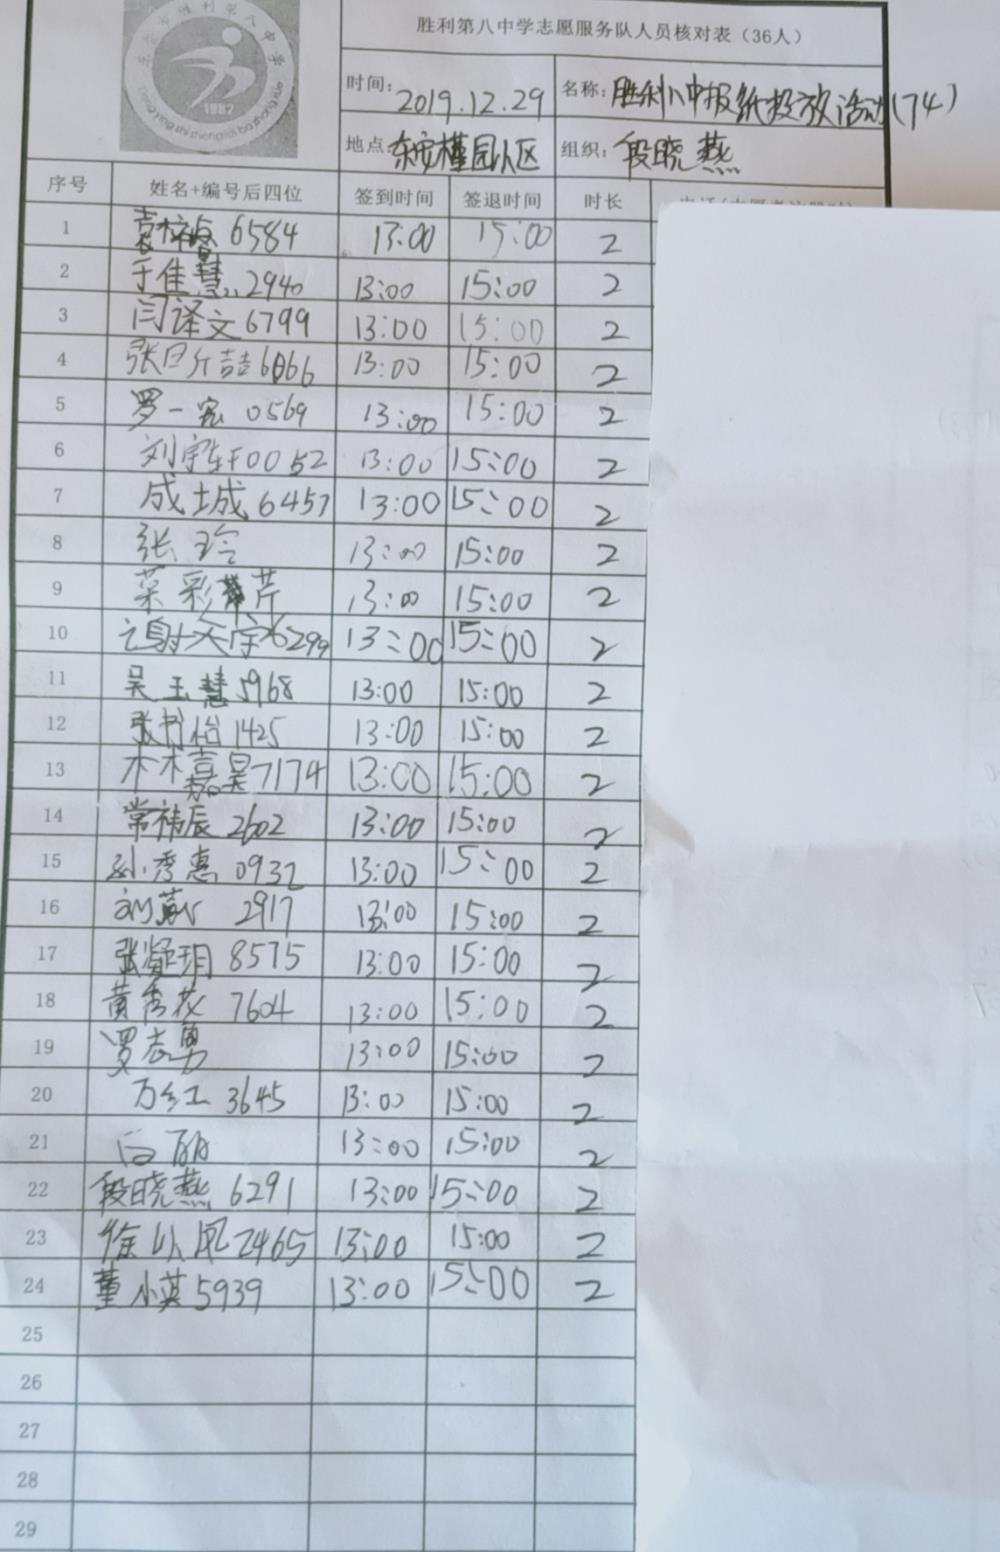 胜利第八中学志愿服务队人员核对表（36人）
时间: 2019.12.29 名称: 胜利八中报纸投放活动(74)
地点: 东安槿园小区 组织: 段晓燕
1982
序号 姓名+编号后四位 签到时间 签退时间 时长
1 袁梓睿 6584 13:00 15:00 2
2 于佳慧 2940 13:00 15:00 2
3 闫译文 6799 13:00 15:00 2
4 张 喆 6066 13:00 15:00 2
5 罗一宸 0569 13:00 15:00 2
6 刘宇轩 0052 13:00 15:00 2
7 成城 6457 13:00 15:00 2
8 张玲 13:00 15:00 2
9 菜彩芹 13:00 15:00 2
10 谢天宇 6299 13:00 15:00 2
11 吴玉慧 5968 13:00 15:00 2
12 张书怡 1425 13:00 15:00 2
13 林嘉昊 7174 13:00 15:00 2
14 常祎辰 2602 13:00 15:00 2
15 孙秀惠 0932 13:00 15:00 2
16 刘 2917 13:00 15:00 2
17 张 玥 8575 13:00 15:00 2
18 黄秀花 7604 13:00 15:00 2
19 罗志勇 13:00 15:00 2
20 万红 3645 13:00 15:00 2
21 白丽 13:00 15:00 2
22 段晓燕 6291 13:00 15:00 2
23 徐以凤 2465 13:00 15:00 2
24 董小英 5939 13:00 15:00 2
25
26
27
28
29